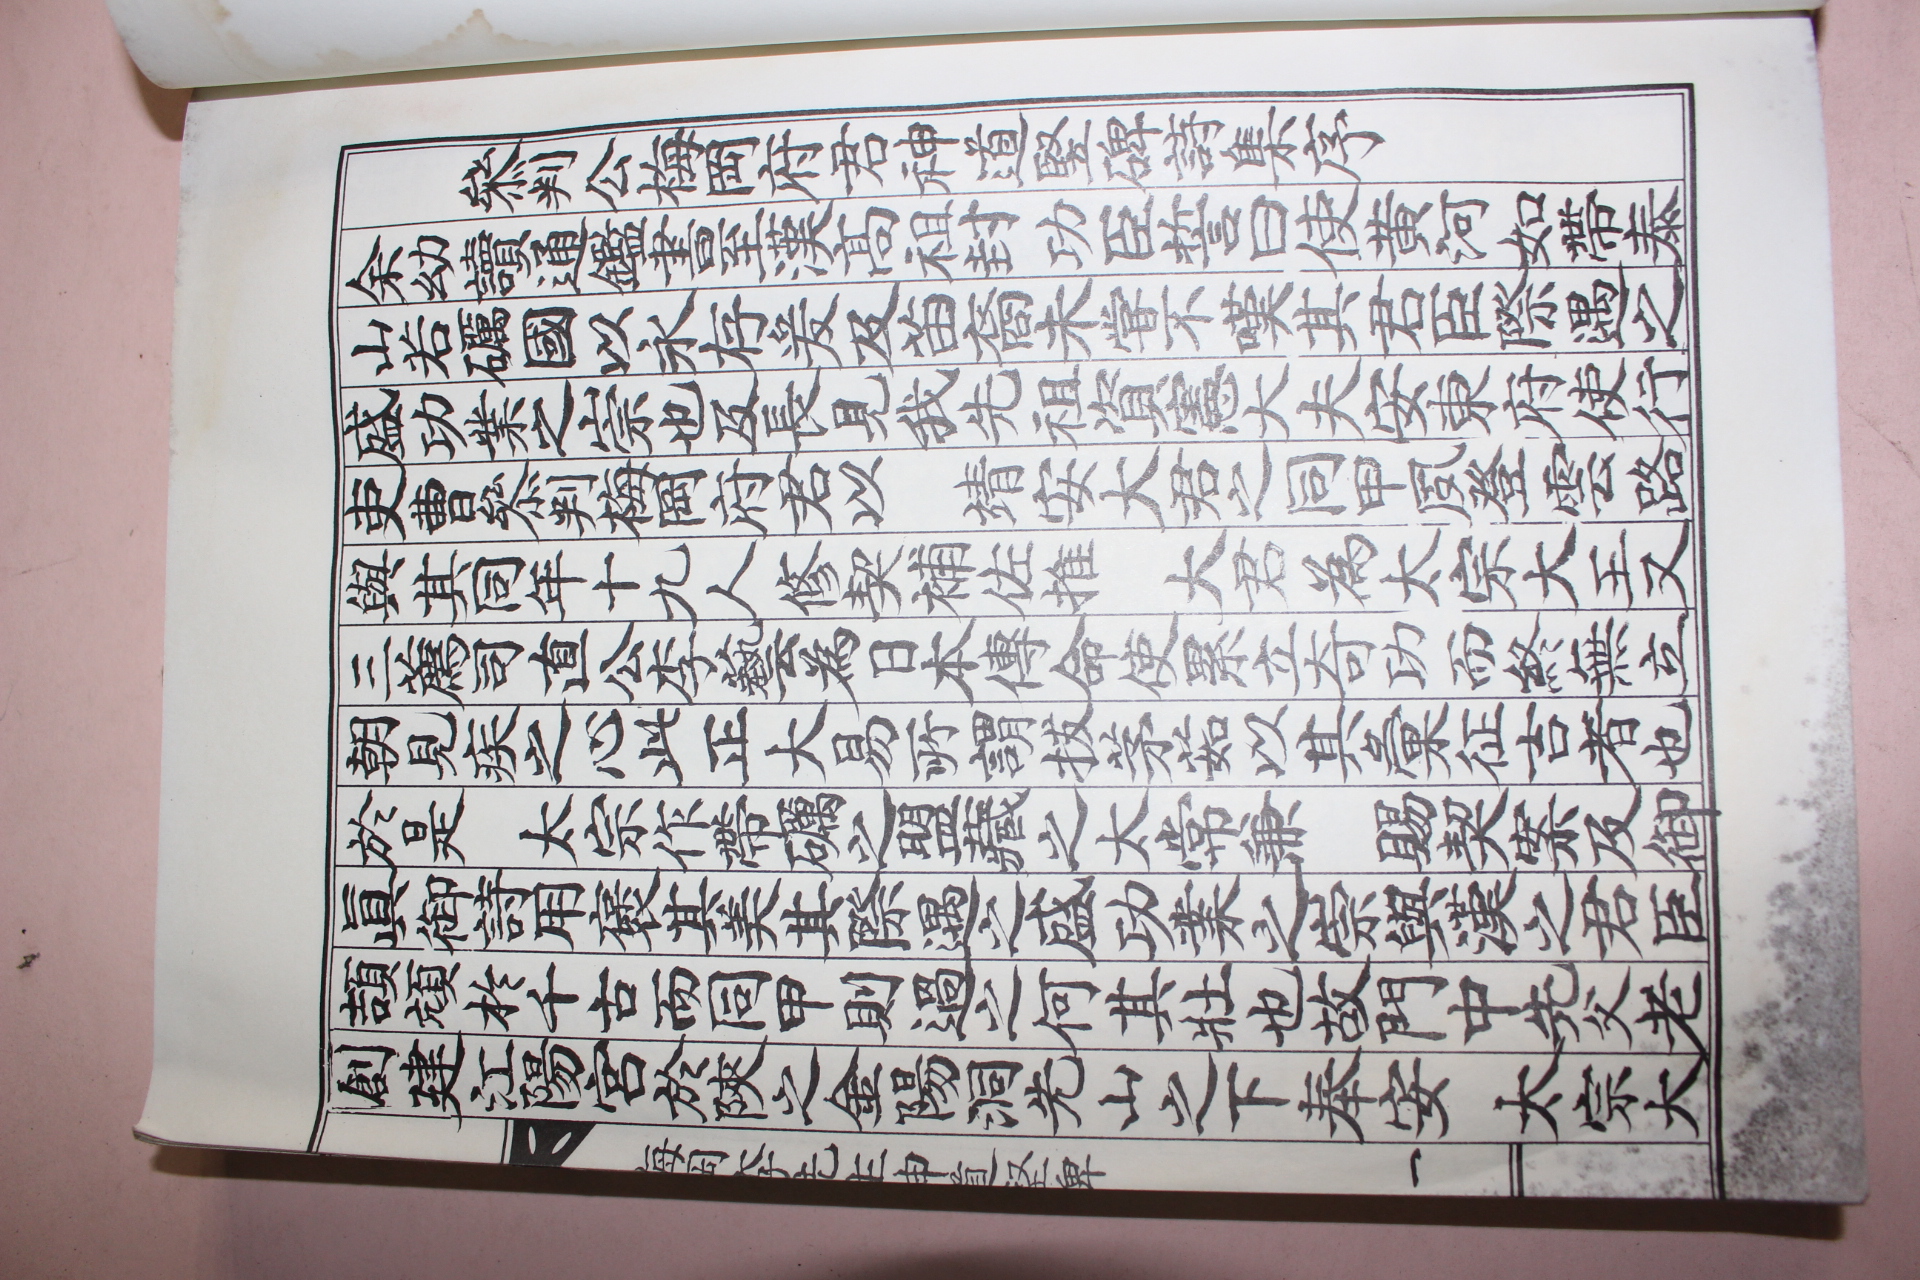 叅判公梅岡府君神道竪碑詩集序
余幼讀通鑑書至漢高祖封功臣誓曰使黃河如帶泰
山若礪國以永存爰及苗裔未嘗不嘆其君臣際遇之
盛功業之崇也及長見我先祖資憲大夫安東府使行
吏曹叅判梅岡府君以 靖安大君之同甲夙登雲路
與其同年十九人修契補佐推 大君爲太宗大王又
三薦司直公李藝爲日本傳命使累立奇功而終無立
朝見疾之心此正大易所謂拔茅茹以其彙征吉者也
於是 太宗作帶礪之盟藏之太常兼 賜契案及御
眞御詩用褒其美其際遇之盛功業之崇與漢之君臣
頡頏於千古而同甲則過之何其壯也故門中先父老
創建江陽宮於陜之金陽洞先山之下奉安 太宗大
梅岡李先生神道竪碑 一